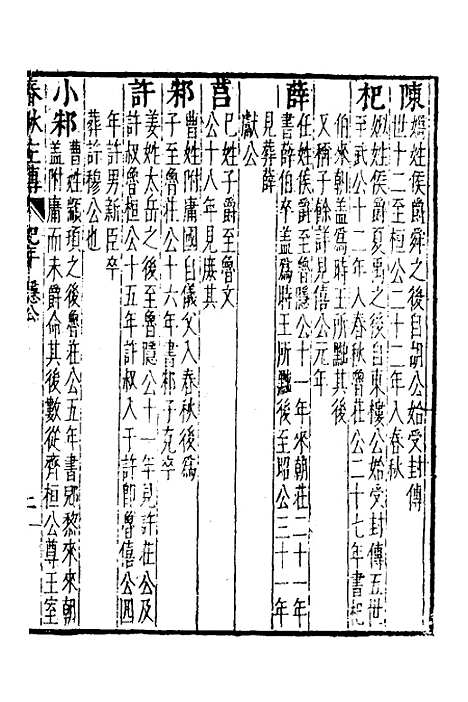 陳媯姓侯爵舜之後自胡公始受封傳
世十二至桓公二十二年入春秋
杞姒姓侯爵夏禹之後自東樓公始受封傳五世
至武公十二年入春秋魯莊公二十七年書杞
伯來朝蓋爲時王所黜其後
又稱子餘詳見僖公元年
薛任姓侯爵至魯隱公十一年來朝莊三十一年
書薛伯卒蓋爲時王所黜後至昭公三十一年
見葬薛
獻公
莒己姓子爵至魯文
公十八年見庶其
邾曹姓附庸國自儀父入春秋後爲
子至魯莊公十六年書邾子克卒
許姜姓太岳之後至魯隱公十一年見許莊公及
許叔魯桓公十五年許叔入于許卽魯僖公四
年許男新臣卒
葬許穆公也
小邾曹姓顓頊之後魯莊公五年書郳黎來來朝
蓋附庸而未爵命其後數從齊桓公尊王室
春秋左傳 隱公